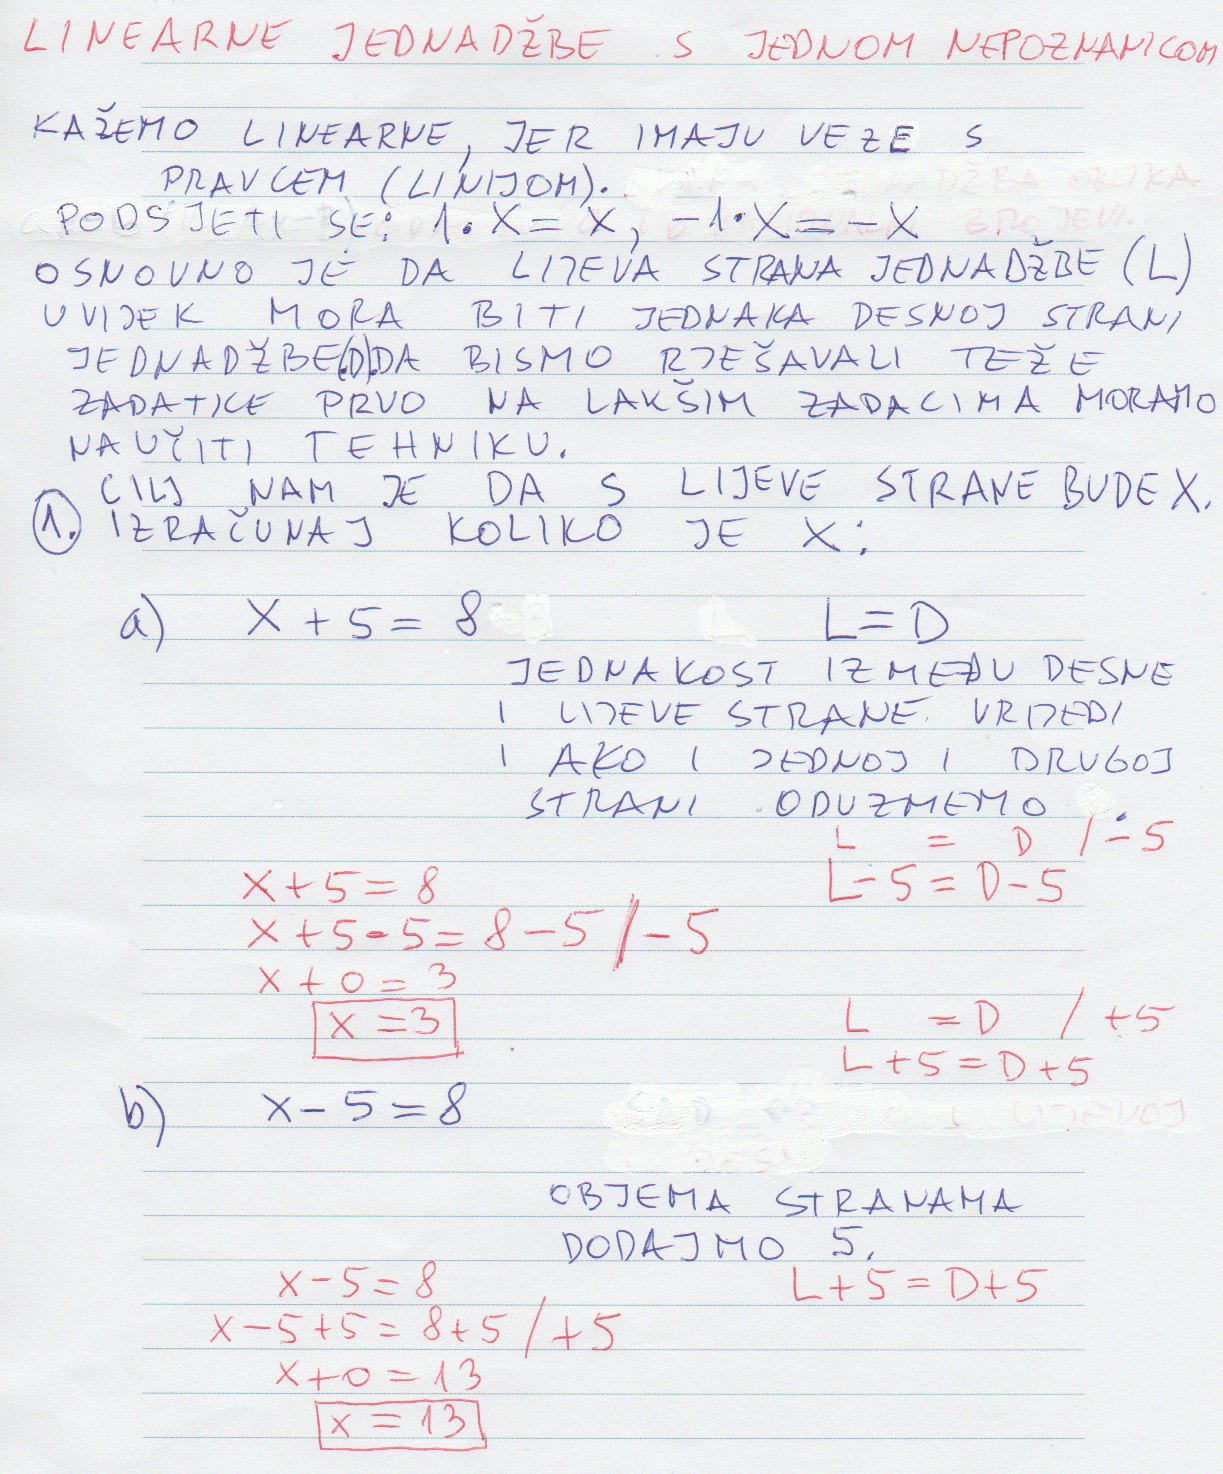 LINEARNE JEDNADŽBE S JEDNOM NEPOZNANICOM
KAŽEMO LINEARNE, JER IMAJU VEZE S
PRAVCEM (LINIJOM).
PODSJETI SE: 1·X = X, -1·X = -X
OSNOVNO JE DA LIJEVA STRANA JEDNADŽBE (L)
UVIJEK MORA BITI JEDNAKA DESNOJ STRANI
JEDNADŽBE(D).DA BISMO RJEŠAVALI TEŽE
ZADATKE PRVO NA LAKŠIM ZADACIMA MORAMO
NAUČITI TEHNIKU.
CILJ NAM JE DA S LIJEVE STRANE BUDE X.
1. IZRAČUNAJ KOLIKO JE X:
a) X + 5 = 8 L = D
JEDNAKOST IZMEĐU DESNE
I LIJEVE STRANE VRIJEDI
I AKO I JEDNOJ I DRUGOJ
STRANI ODUZMEMO .
L = D / -5
X + 5 = 8 L - 5 = D - 5
X + 5 - 5 = 8 - 5 / - 5
X + 0 = 3
X = 3 L = D / +5
L + 5 = D + 5
b) X - 5 = 8
OBJEMA STRANAMA
DODAJMO 5.
X - 5 = 8 L + 5 = D + 5
X - 5 + 5 = 8 + 5 / + 5
X + 0 = 13
X = 13